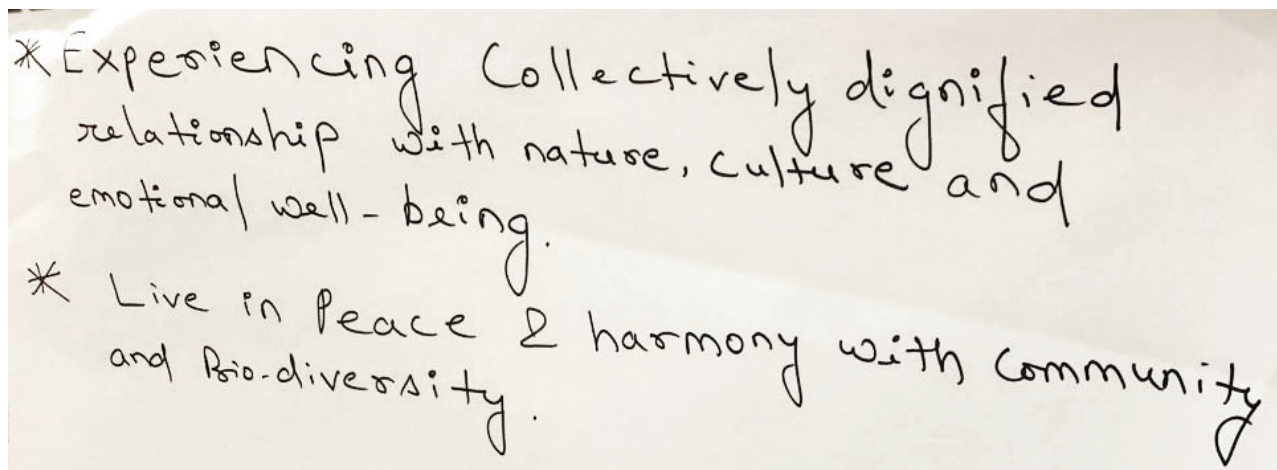 * Experiencing Collectively dignified
relationship with nature, culture and
emotional well-being.
* Live in Peace & harmony with community
and Bio-diversity.